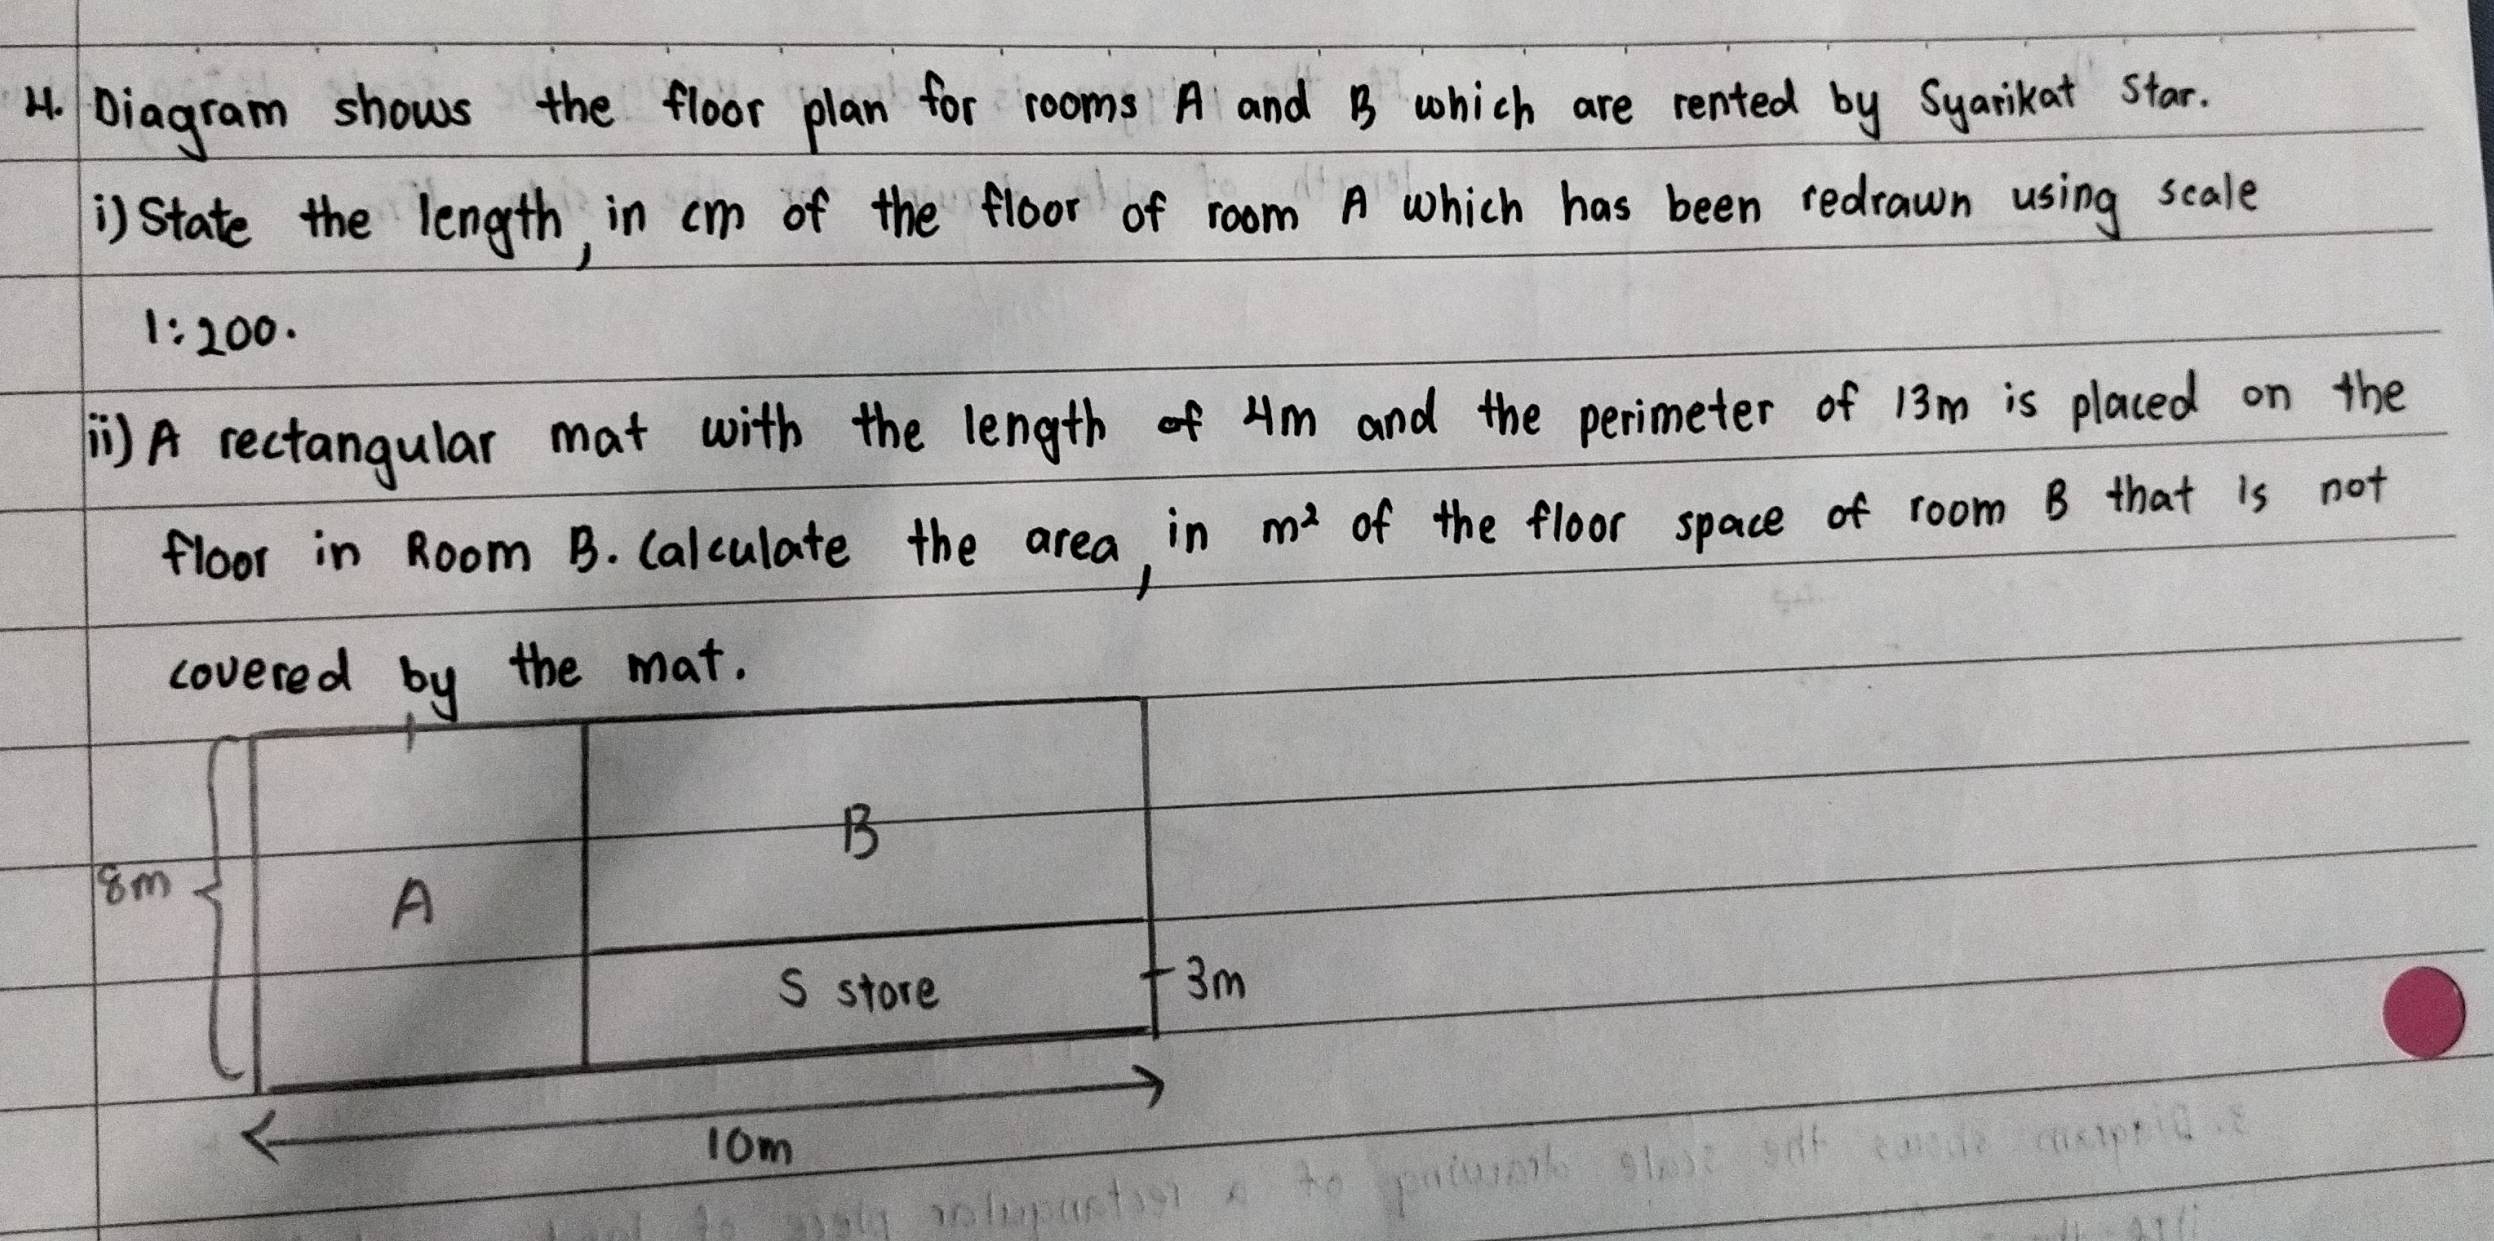 4. Diagram shows the floor plan for rooms A and B which are rented by Syarikat Star.
i) State the length, in cm of the floor of room A which has been redrawn using scale
1:200.
ii) A rectangular mat with the length of 4m and the perimeter of 13m is placed on the
floor in Room B. Calculate the area, in m² of the floor space of room B that is not
covered by the mat.
B
8m
A
S store
3m
10m
3. Diagram shows the scale drawing of a rectangular piece of